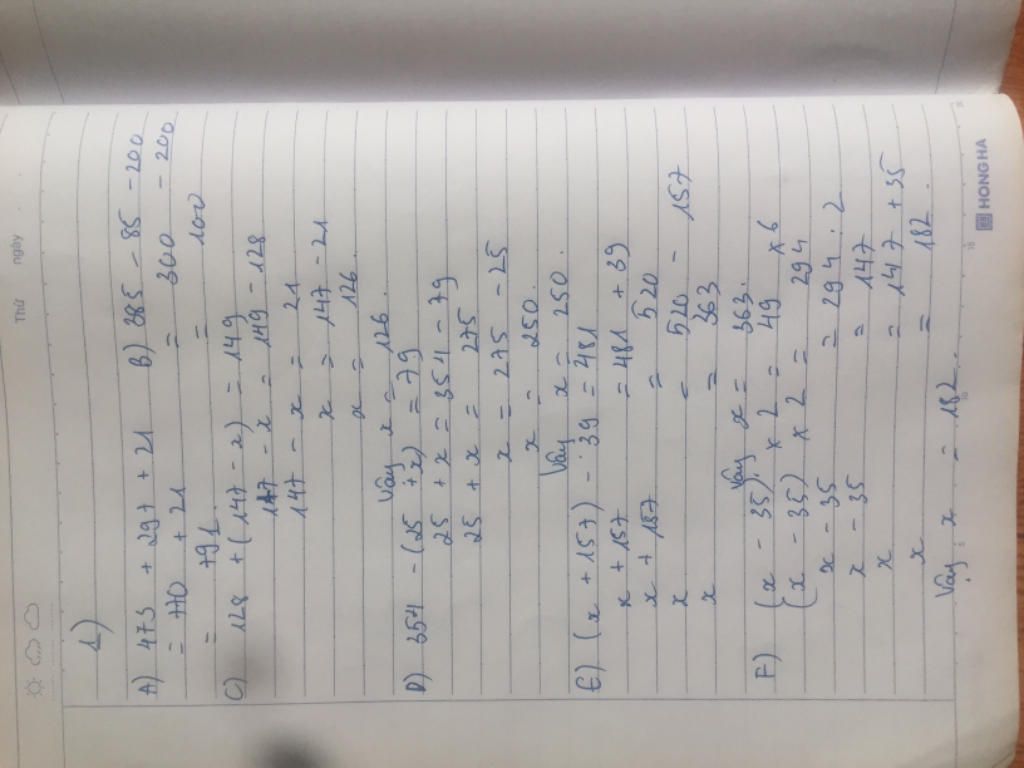 Thứ
ngày
1)
A) 473 + 297 + 21 B) 385 - 85 - 200
= 770 + 21 = 300 - 200
= 791 = 100
C) 128 + (147 - x) = 149
147 - x = 149 - 128
147 - x = 21
x = 147 - 21
x = 126.
Vậy x = 126.
D) 354 - (25 + x) = 79
25 + x = 354 - 79
25 + x = 275
x = 275 - 25
x = 250.
Vậy x = 250.
E) (x + 157) - 39 = 481
x + 157 = 481 + 39
x + 157 = 520
x = 520 - 157
x = 363
Vậy x = 363.
F) (x - 35) x 2 = 49 x 6
(x - 35) x 2 = 294
x - 35 = 294 : 2
x - 35 = 147
x = 147 + 35
x = 182.
Vậy x = 182.
HONG HA